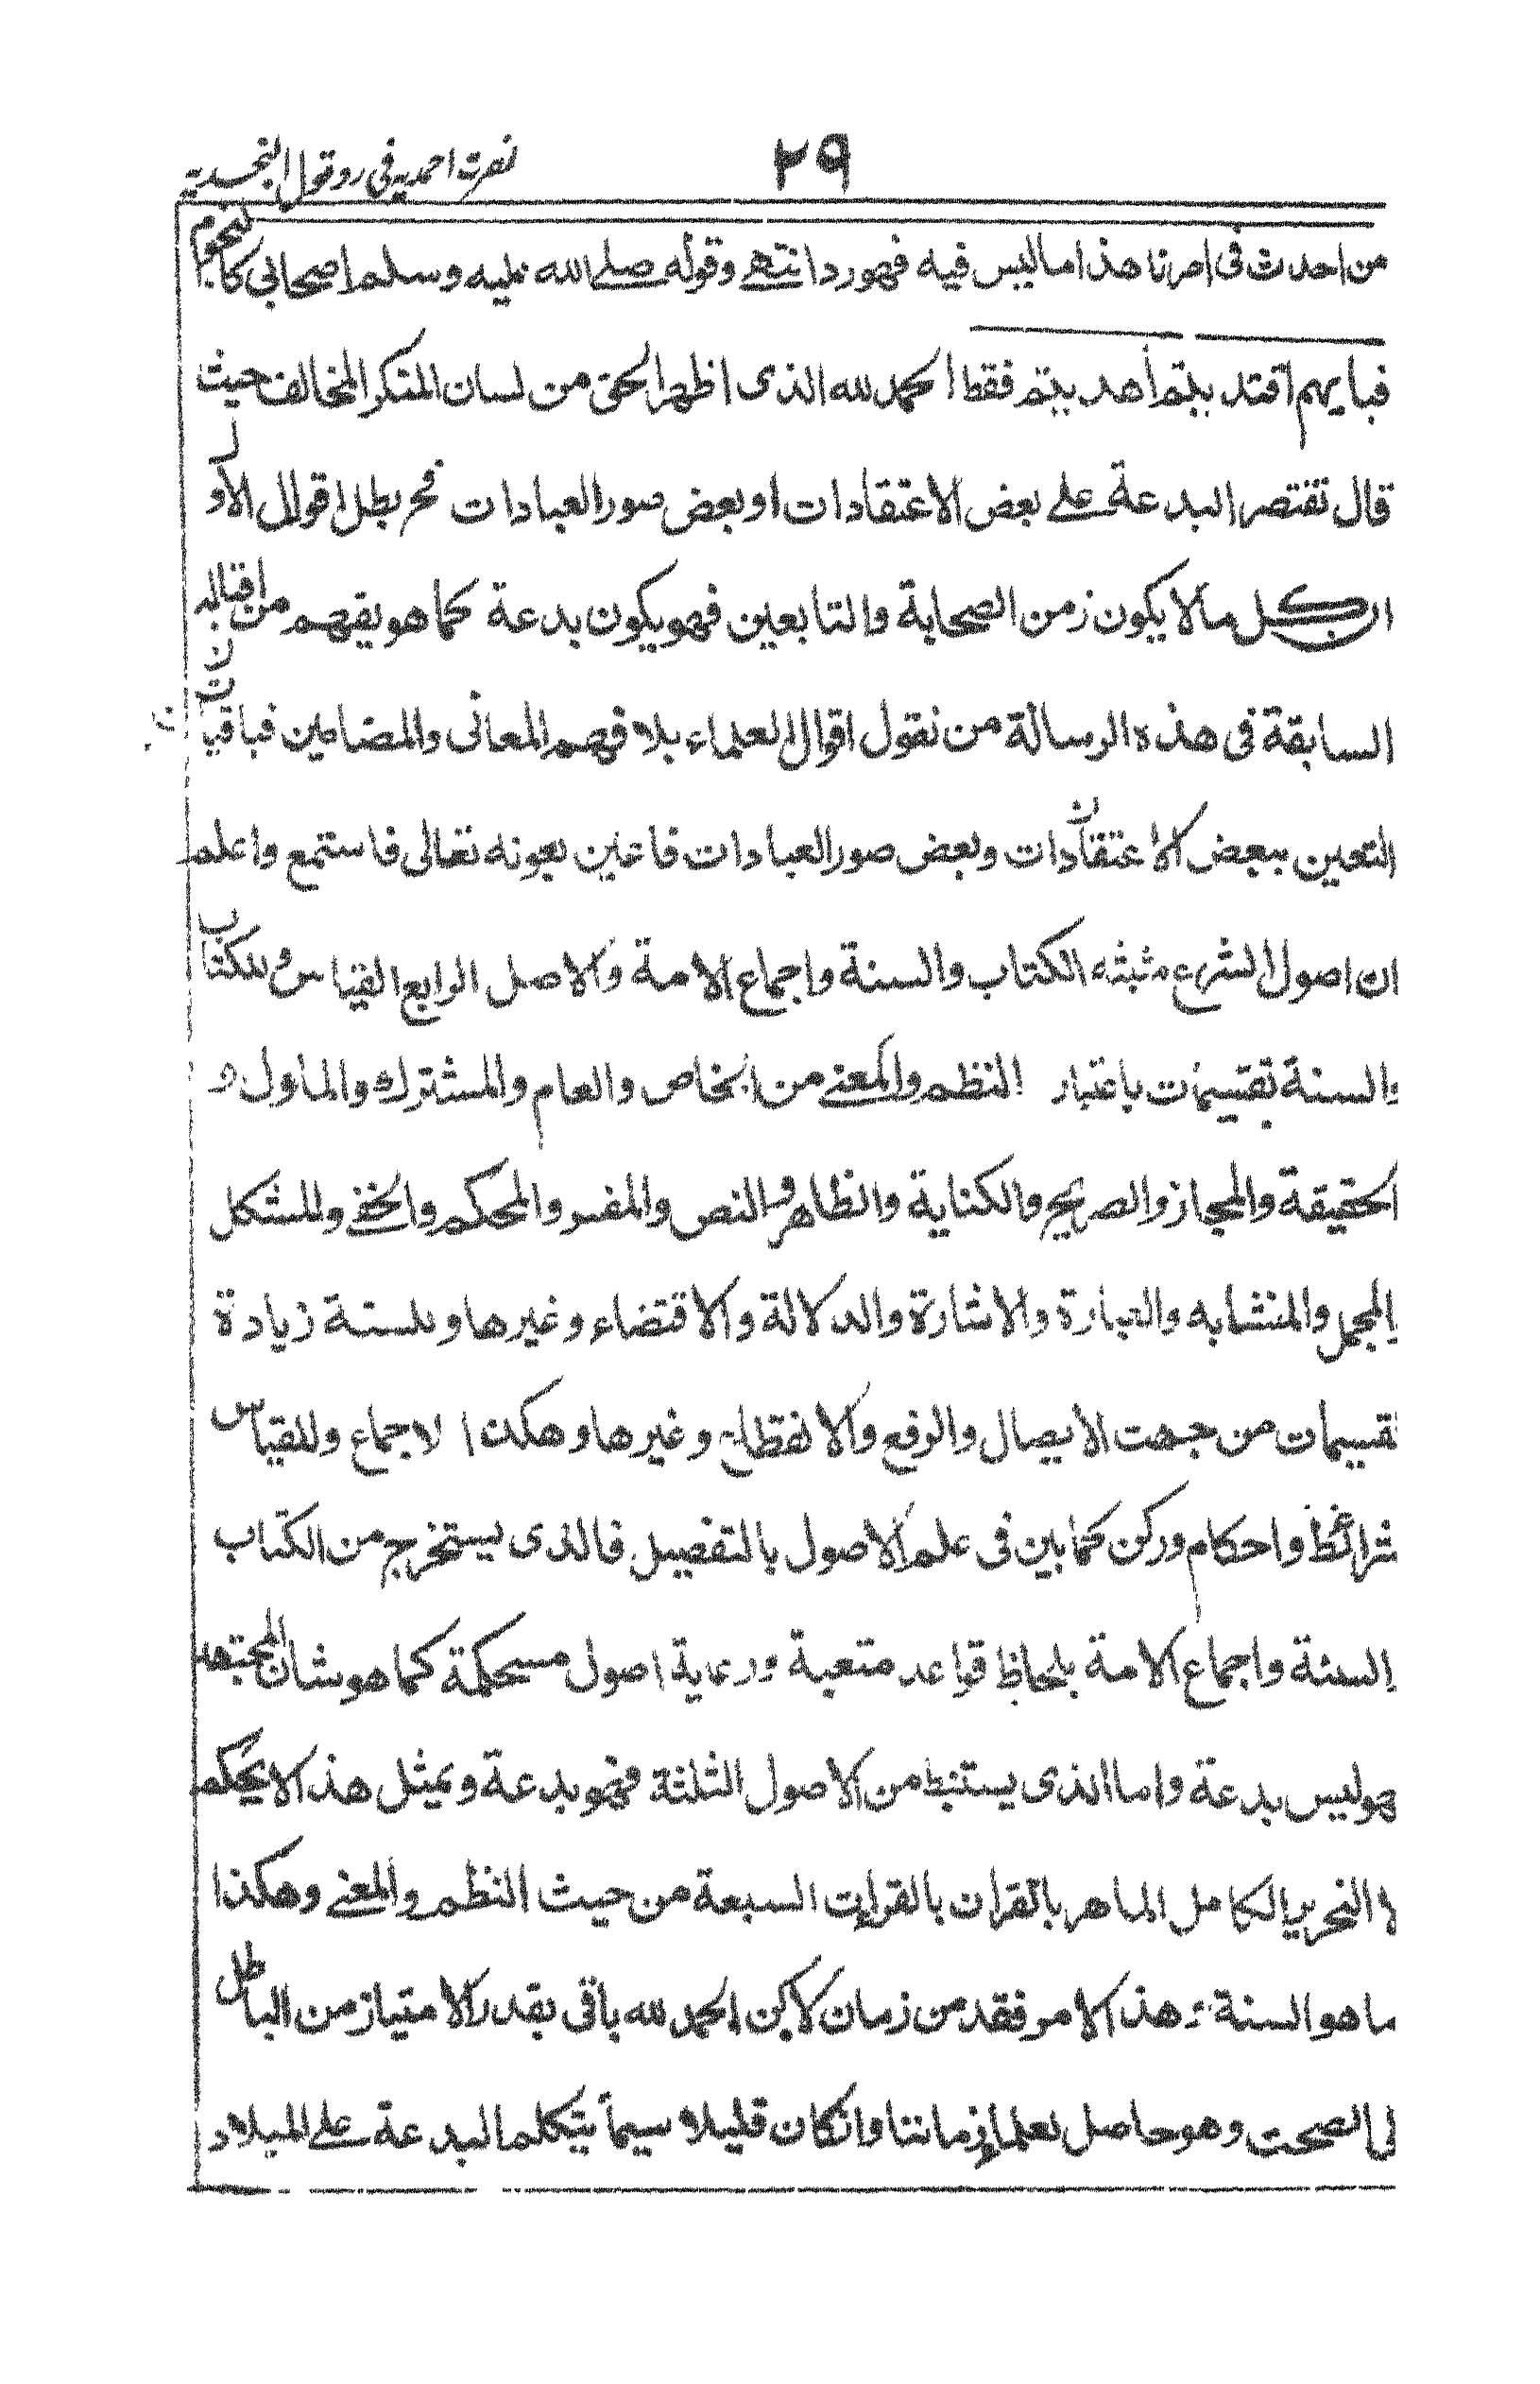 ٢٩ نصرت احمدیه فی رد قول النجدیه
من احدث فی امرنا هذا ما لیس فیه فهو رد انتهے وقوله صلے الله علیه وسلم اصحابی کالنجوم
فبایهم اقتدیتم اهدیتم فقط الحمد لله الذی اظهر الحق من لسان المنکر المخالف حیث
قال تقتصر البدعة علے بعض الاعتقادات او بعض صور العبادات فح بطل اقوال الاول
ان کل مالا یکون زمن الصحابة والتابعین فهو یکون بدعة کما هو یفهم من اقباله
السابقة فی هذه الرسالة من نقول اقوال العلماء بلا فهم المعانی والمضامین فباقیات
التعین ببعض الاعتقادات وبعض صور العبادات فاعین بعونه تعالی فاستمع واعلم
ان اصول الشرع مثبته الکتاب والسنة واجماع الامة والاصل الرابع القیاس وللکتاب
والسنة تقسیمات باعتبار النظم والمعنے من الخاص والعام والمشترك والماول و
الحقیقة والمجاز والصریح والکنایة والظاهر والنص والمفسر والمحکم والخفے والمشکل
المجمل والمتشابه والعبارة والاشارة والدلالة والاقتضاء وغیرها وللسنة زیادة
تقسیمات من جهت الایصال والرفع والانقطاع وغیرها وهکذا الاجماع وللقیاس
شرائط واحکام ورکن کما بین فی علم الاصول بالتفصیل فالذی یستخرج من الکتاب
السنة واجماع الامة بلحاظ قواعد متعبة ورعایة اصول مستحکمة کما هو شان المجتهد
هو لیس بدعة واما الذی یستنبط من الاصول الثلثة فهو بدعة وبمثل هذا لا یحکم
لا النحریر الکامل الماهر بالقران بالقرات السبعة من حیث النظم والمعنے وهکذا
ما هو السنة هذا الامر فقد من زمان لاکن الحمد لله باقی بقدر الامتیاز من الباطل
لی الصحت وهو حاصل لعلماء زماننا وان کان قلیلا سیما یتکلم البدعة علے المیلاد